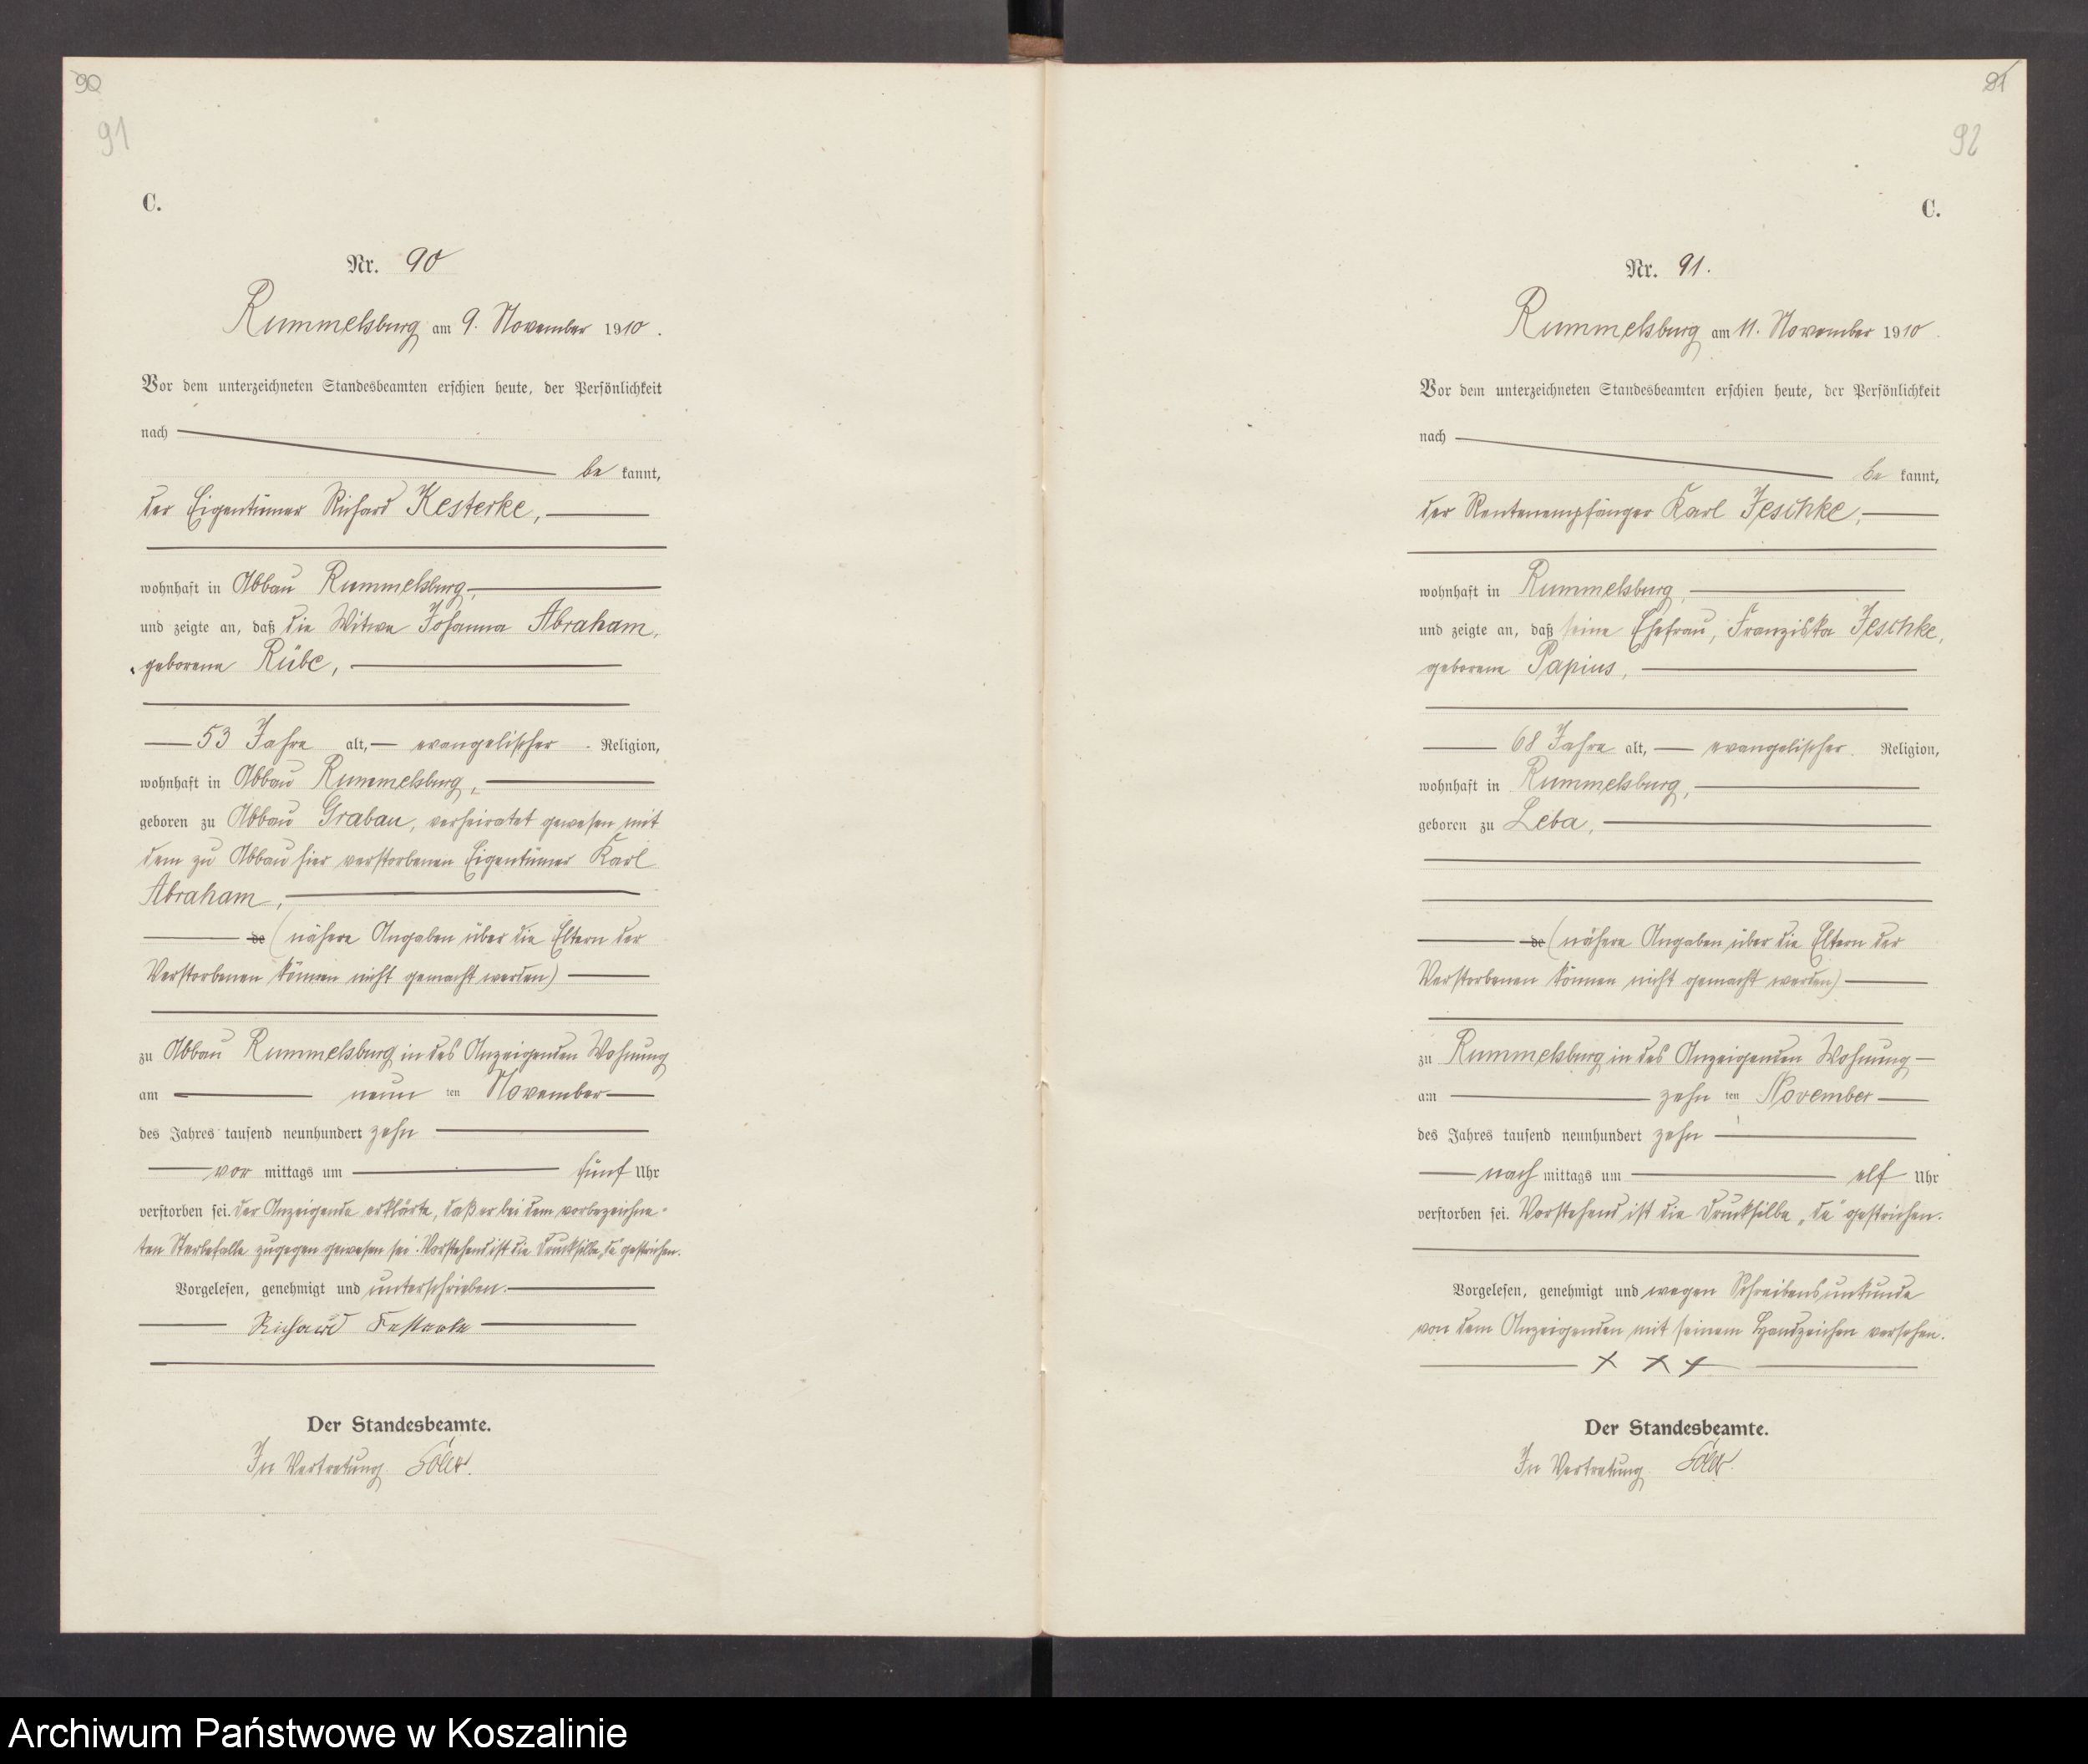 90
91
C.
Nr. 90
Rummelsburg am 9. November 1910.
Vor dem unterzeichneten Standesbeamten erschien heute, der Persönlichkeit
nach
be kannt,
der Eigentümer Richard Kesterke,
wohnhaft in Abbau Rummelsburg,
und zeigte an, daß die Witwe Johanna Abraham,
geborene Rübe,
53 Jahre alt, evangelischer Religion,
wohnhaft in Abbau Rummelsburg,
geboren zu Abbau Grabau, verheiratet gewesen mit
dem zu Abbau hier verstorbenen Eigentümer Karl
Abraham,
de (nähere Angaben über die Eltern der
Verstorbenen können nicht gemacht werden)
zu Abbau Rummelsburg in des Anzeigenden Wohnung
am neun ten November
des Jahres tausend neunhundert zehn
vor mittags um fünf Uhr
verstorben sei. Der Anzeigende erklärte, daß er bei dem vorbezeichne-
ten Sterbefalle zugegen gewesen sei. Vorstehend ist die Drucksilbe „de“ gestrichen.
Vorgelesen, genehmigt und unterschrieben.
Richard Kesterke
Der Standesbeamte.
In Vertretung
91
92
C.
Nr. 91.
Rummelsburg am 11. November 1910.
Vor dem unterzeichneten Standesbeamten erschien heute, der Persönlichkeit
nach
be kannt,
der Rentenempfänger Karl Jeschke,
wohnhaft in Rummelsburg,
und zeigte an, daß seine Ehefrau, Franziska Jeschke,
geborene Papius,
68 Jahre alt, evangelischer Religion,
wohnhaft in Rummelsburg,
geboren zu Leba,
de (nähere Angaben über die Eltern der
Verstorbenen können nicht gemacht werden)
zu Rummelsburg in des Anzeigenden Wohnung
am zehn ten November
des Jahres tausend neunhundert zehn
nach mittags um elf Uhr
verstorben sei. Vorstehend ist die Drucksilbe „de“ gestrichen.
Vorgelesen, genehmigt und wegen Schreibensunkunde
von dem Anzeigenden mit seinem Handzeichen versehen.
x x x
Der Standesbeamte.
In Vertretung
Archiwum Państwowe w Koszalinie